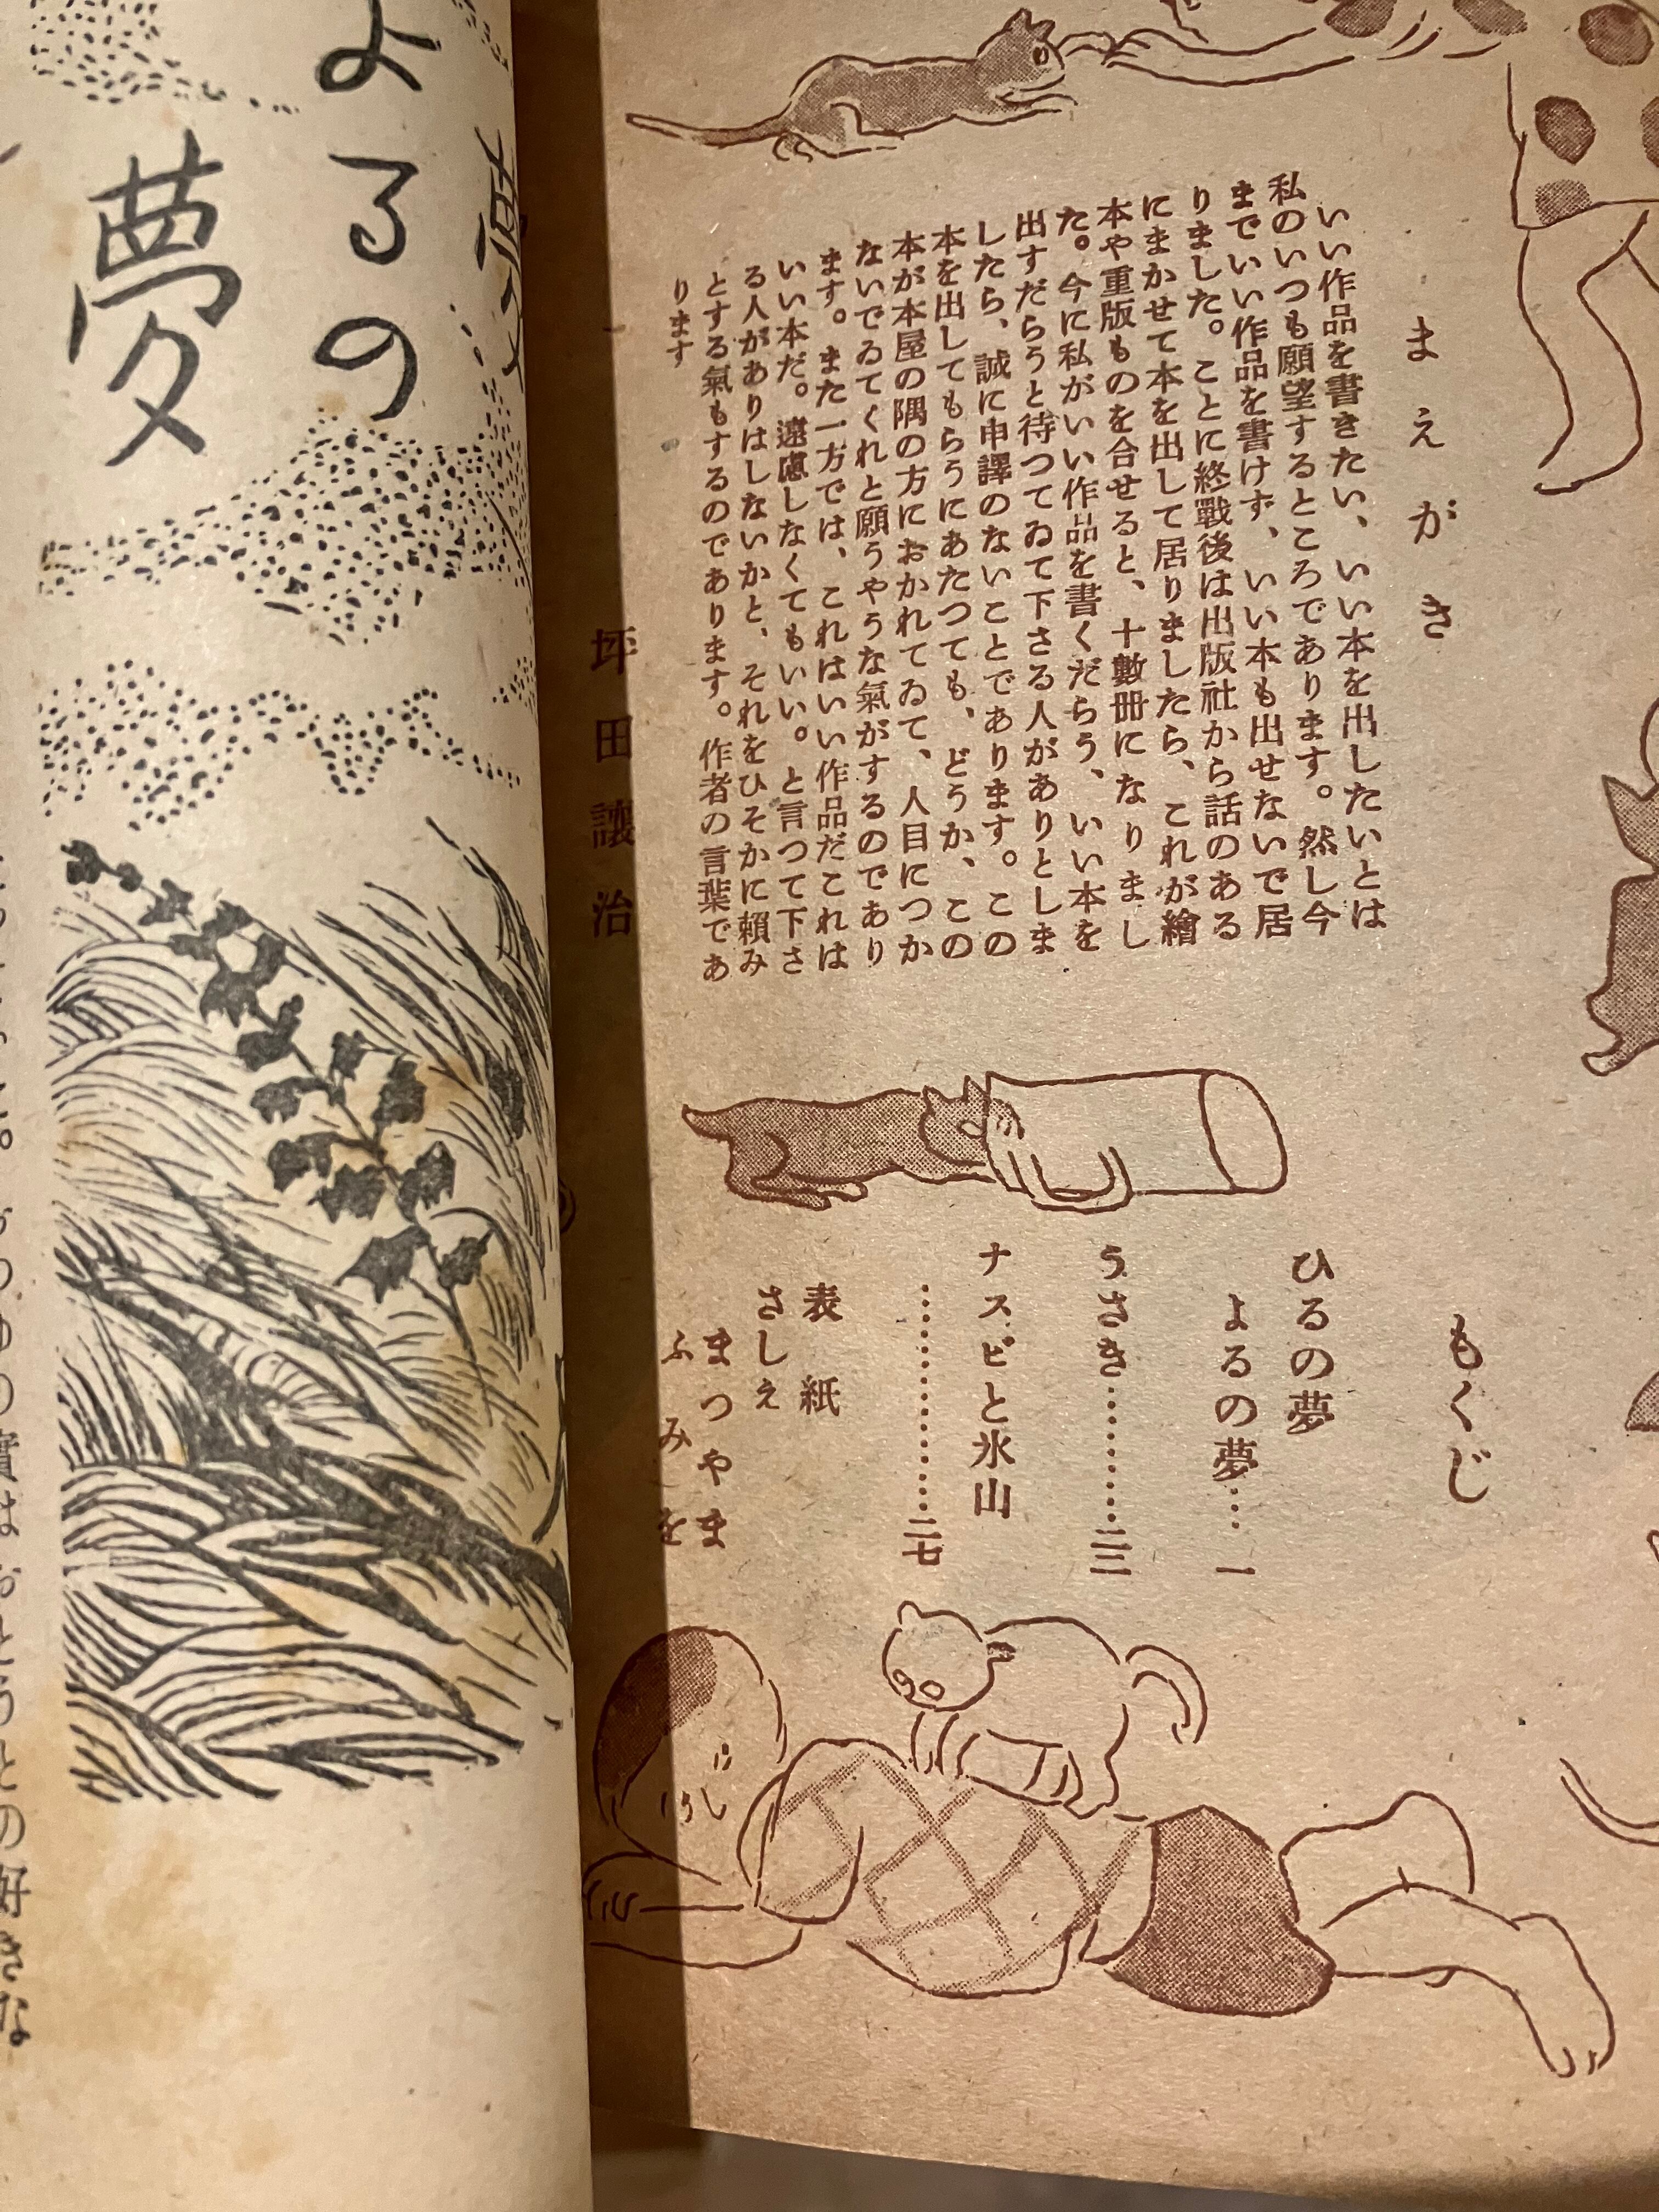 まえがき
いい作品を書きたい、いい本を出したいとは
私のいつも願望するところであります。然し今
までいい作品を書けず、いい本も出せないで居
りました。ことに終戰後は出版社から話のある
にまかせて本を出して居りましたら、これが繪
本や重版ものを合せると、十數冊になりまし
た。今に私がいい作品を書くだらう、いい本を
出すだらうと待つてゐて下さる人がありとしま
したら、誠に申譯のないことであります。この
本を出してもらうにあたつても、どうか、この
本が本屋の隅の方におかれてゐて、人目につか
ないでゐてくれと願うやうな氣がするのであり
ます。また一方では、これはいい作品だこれは
いい本だ。遠慮しなくてもいい。と言つて下さ
る人がありはしないかと、それをひそかに賴み
とする氣もするのであります。作者の言葉であ
ります
坪田讓治
もくじ
ひるの夢
よるの夢…一
うさき………二三
ナスビと氷山
……………二七
表紙
さしえ
まつやま
ふみを
よるの
夢
實はおとうとの好きな